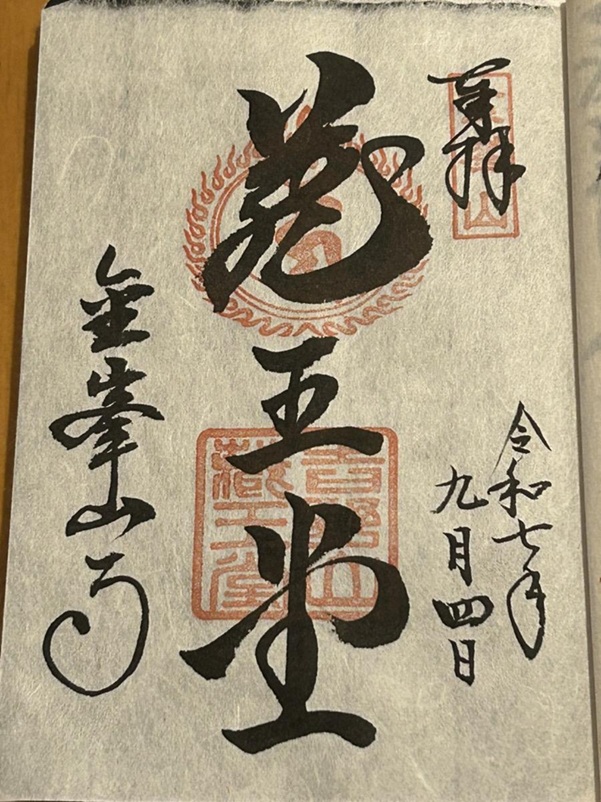 奉拝
令和七年
九月四日
蔵王堂
吉野山
蔵王堂
金峯山寺